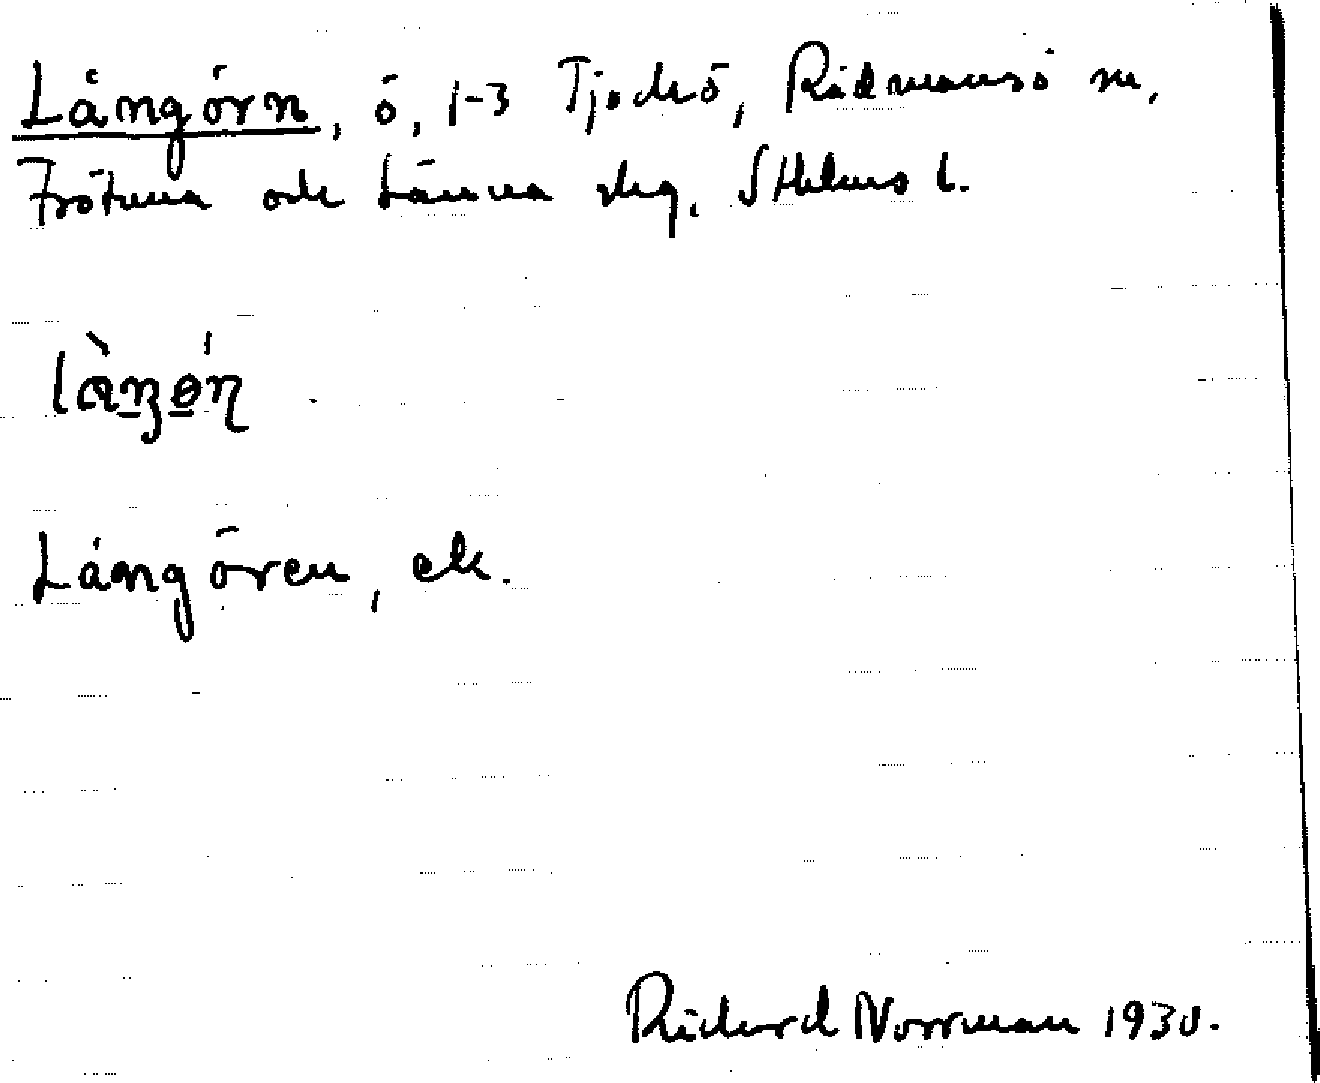 Långörn, ö, 1-3 Tjockö, Rådmansö sn,
Frötuna och Länna skg, Sthlms l.
Långören, ek.
Richard Norrman 1930.